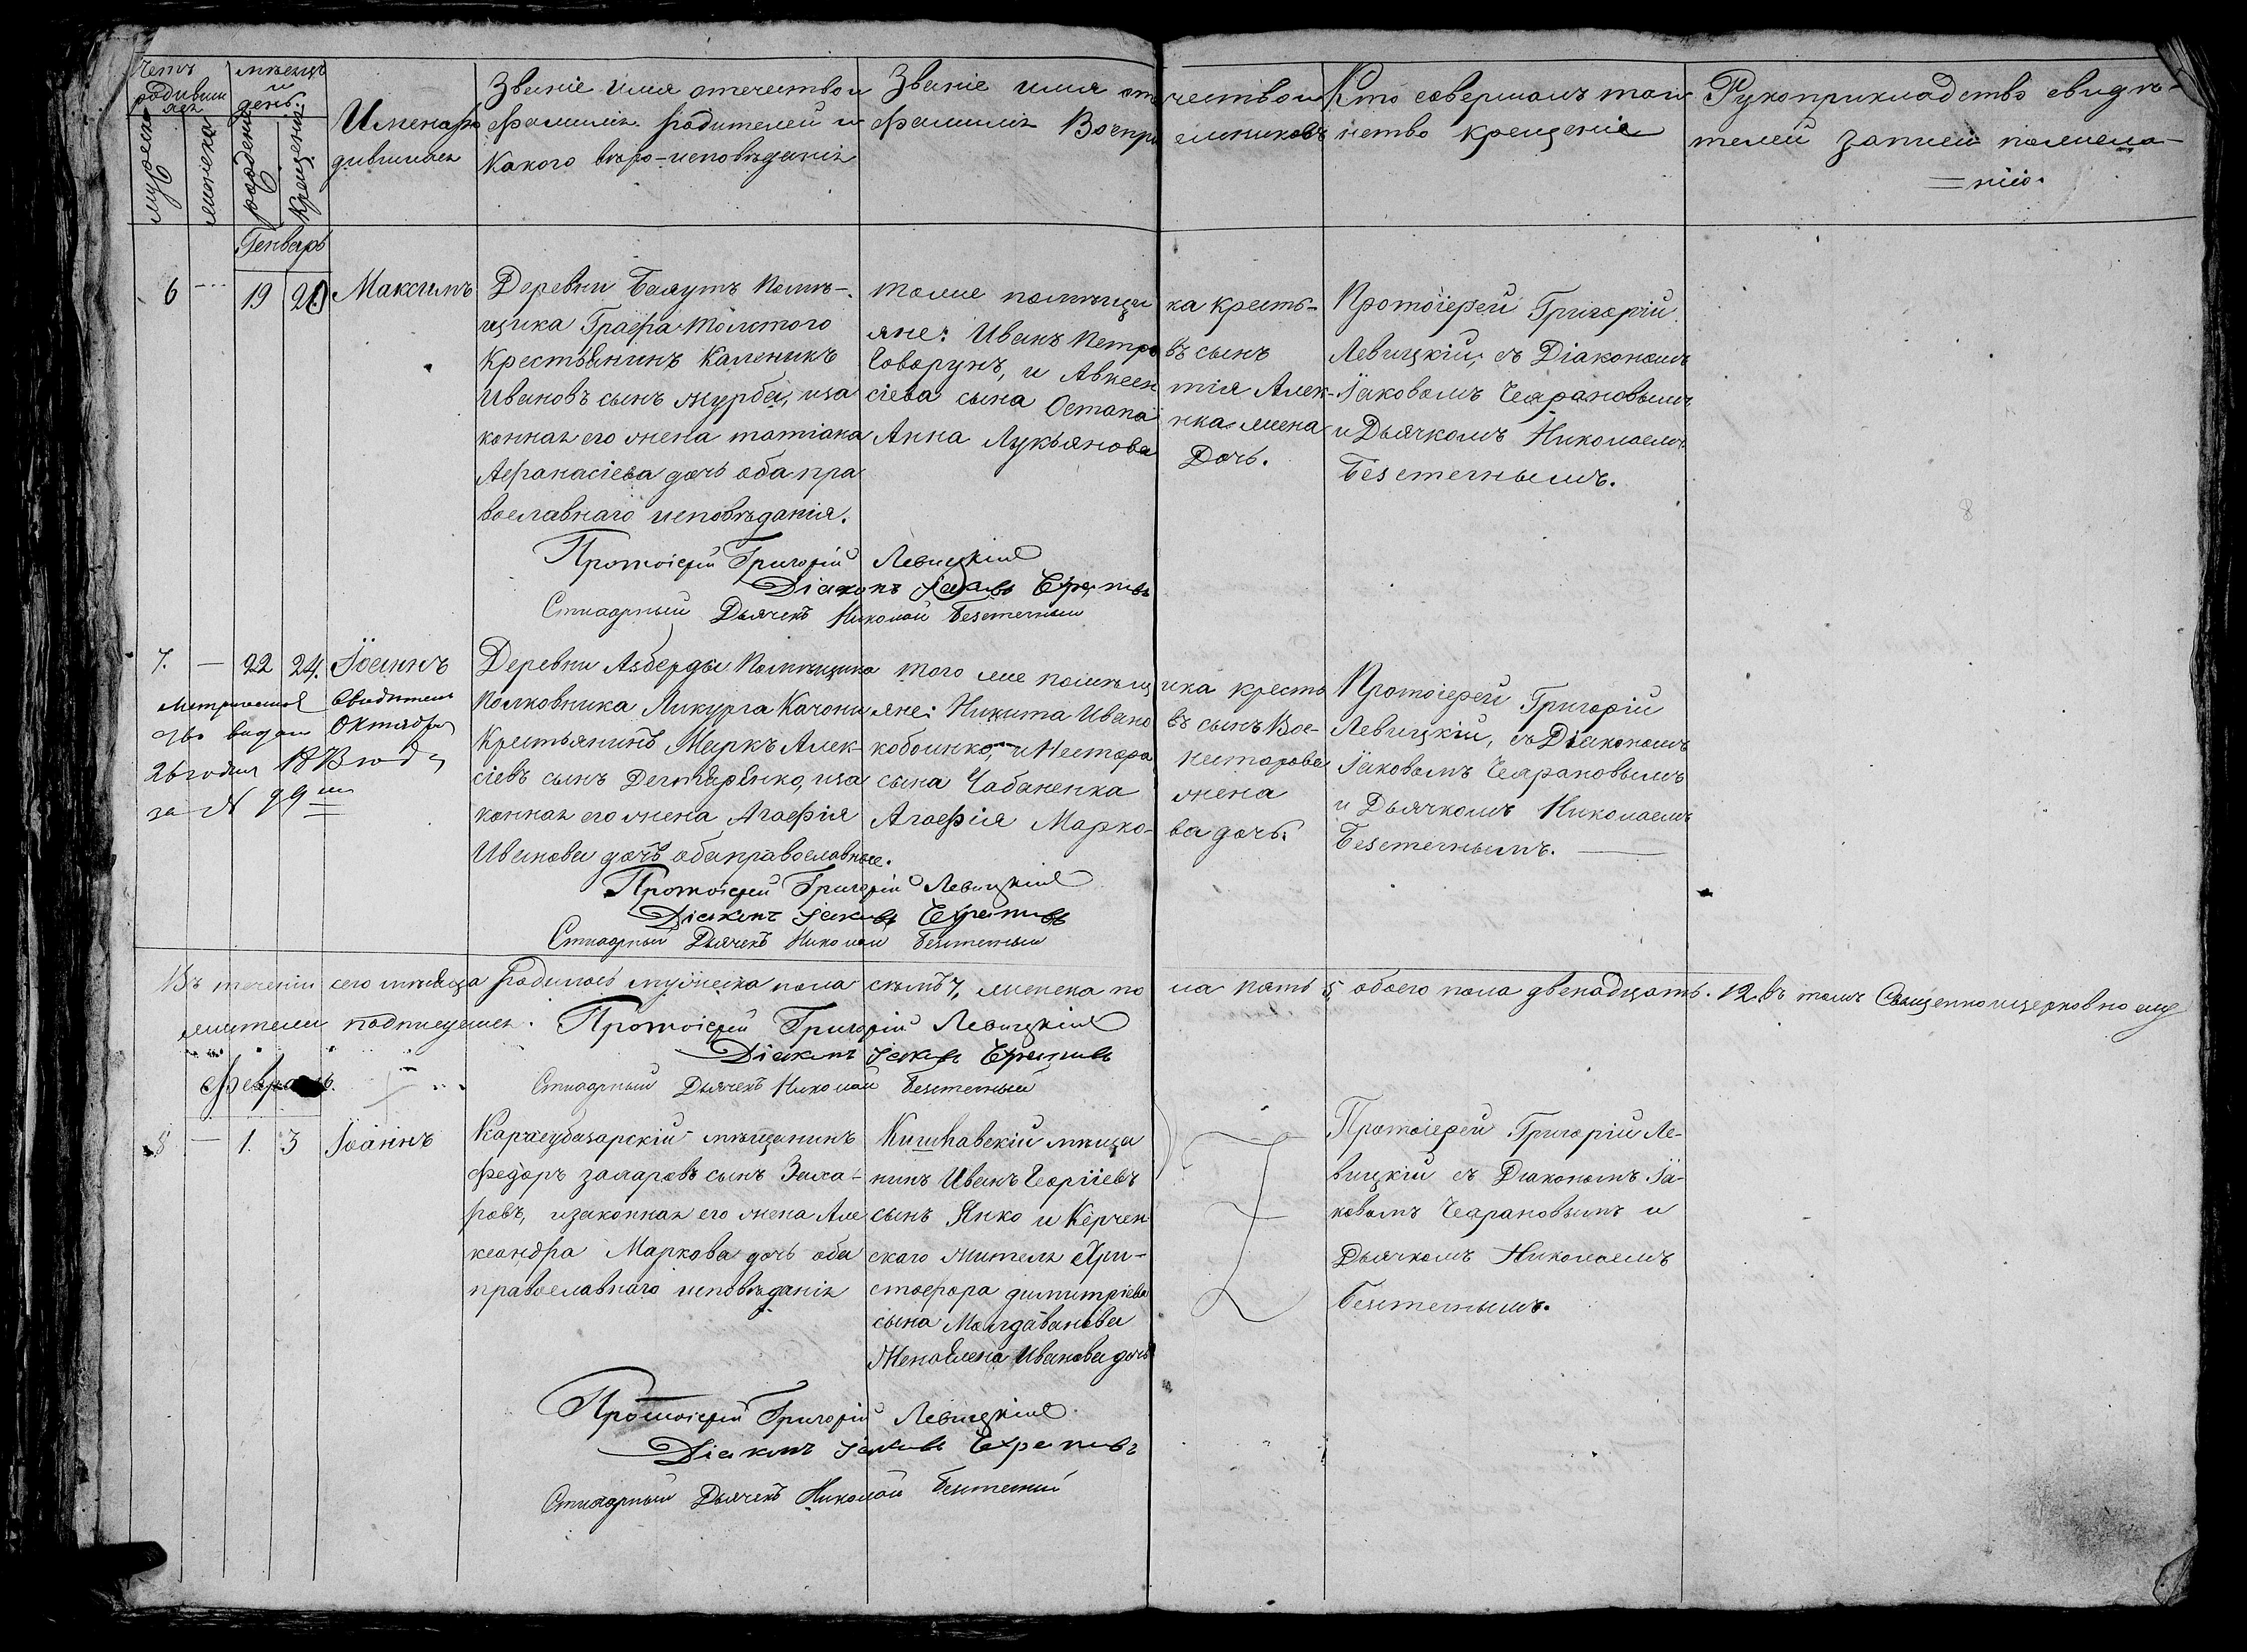 Четъ родившихся
мужеска
женска
мѣсяцъ и день
рожденія
Крещенія
Имена родившихся
Званіе имя отечество и
фамилія родителей и
какого вѣро-исповѣданія
Званіе имя отчество и
фамилія Воспріемниковъ
Кто совершалъ таи
нство крещеніе
Рукоприкладство свидѣ-
телей записи по желa-
=нію.
Генварь
6 --- 19 20 Максимъ
Деревни Балутъ Помѣ-
щика Графа Толстого
Крестьянинъ Каленикъ
Ивановъ сынъ журба, иза
конная его жена татіана
Афанасіева дочь оба пра
вославнаго исповѣданія.
тогоже помѣщика кресть-
яне: Иванъ Петровъ сынъ
Говорунъ, и Авксентія Алек-
сіева сына Остапенка жена
Анна Лукьянова Дочь.
Протоіерей Григорій
Левицкій, съ Діакономъ
Іаковомъ
и Дьячкомъ Николаемъ
Безстечнымъ.
Протоіерей Григорій Левицкій
Діаконъ Іаковъ
Стихарный Дьячекъ Николай Безстечный
7. — 22 24. Іоаннъ
свидѣтель
ство выдано Октября
26 годня 18 года
за N 99
Деревни Азберды Помѣщика
Полковника Ликурга Качони
Крестьянинъ Маркъ Алек-
сіевъ сынъ Дегтяренко, иза
конная его жена Агафія
Иванова дочь оба православные.
того же помѣщика кресть
яне: Никита Ивановъ сынъ Вос-
кобоинко, и Нестора Несторова
сына Чабаненка жена
Агафія Марко- ва дочь.
Протоіерей Григорій
Левицкій, съ Діакономъ
Іаковомъ
и Дьячкомъ Николаемъ
Безстечнымъ.
Протоіерей Григорій Левицкій
Діаконъ Іаковъ
Стихарный Дьячекъ Николай Безстечный
Въ теченіи сего мѣсяца родилось мужеска пола семь 7, женска пола пять 5 обоего пола двенадцать. 12. въ томъ Священноцерковнослу
жители подписуемся. Протоіерей Григорій Левицкій
Діаконъ Іаковъ
Стихарный Дьячекъ Николай Безстечный
Февраль.
8 — 1. 3 Іоаннъ
Карасубазарскій мѣщанинъ
Федоръ захаровъ сынъ Заха-
ровъ, изаконная его жена Але
ксандра Маркова дочь оба
православнаго исповѣданія
Кишнавскій мѣща
нинъ Иванъ Георгіевъ
сынъ Янко и Керчен
скаго жителя Хри-
стофора димитріева
сына Молдаванова
Жена Елена Иванова дочь
Протоіерей Григорій Ле-
вицкій съ Діакономъ Іа-
ковомъ и
Дьячкомъ Николаемъ
Безстечнымъ.
Протоіерей Григорій Левицкій
Діаконъ Іаковъ
Стихарный Дьячекъ Николай Безстечный